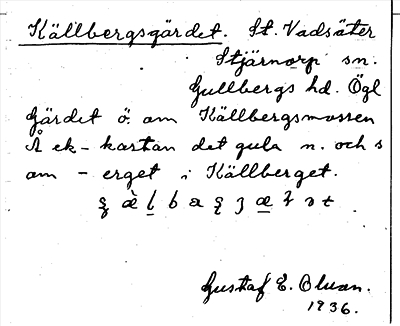 Källbergsgärdet. St. Vadsäter
Stjärnorp sn.
Gullbergs hd. Ögl
Gärdet ö. om Källbergsmossen
Å ek-kartan det gula n. och s
om - erget i Källberget.
Gustaf E. Oluan.
1936.